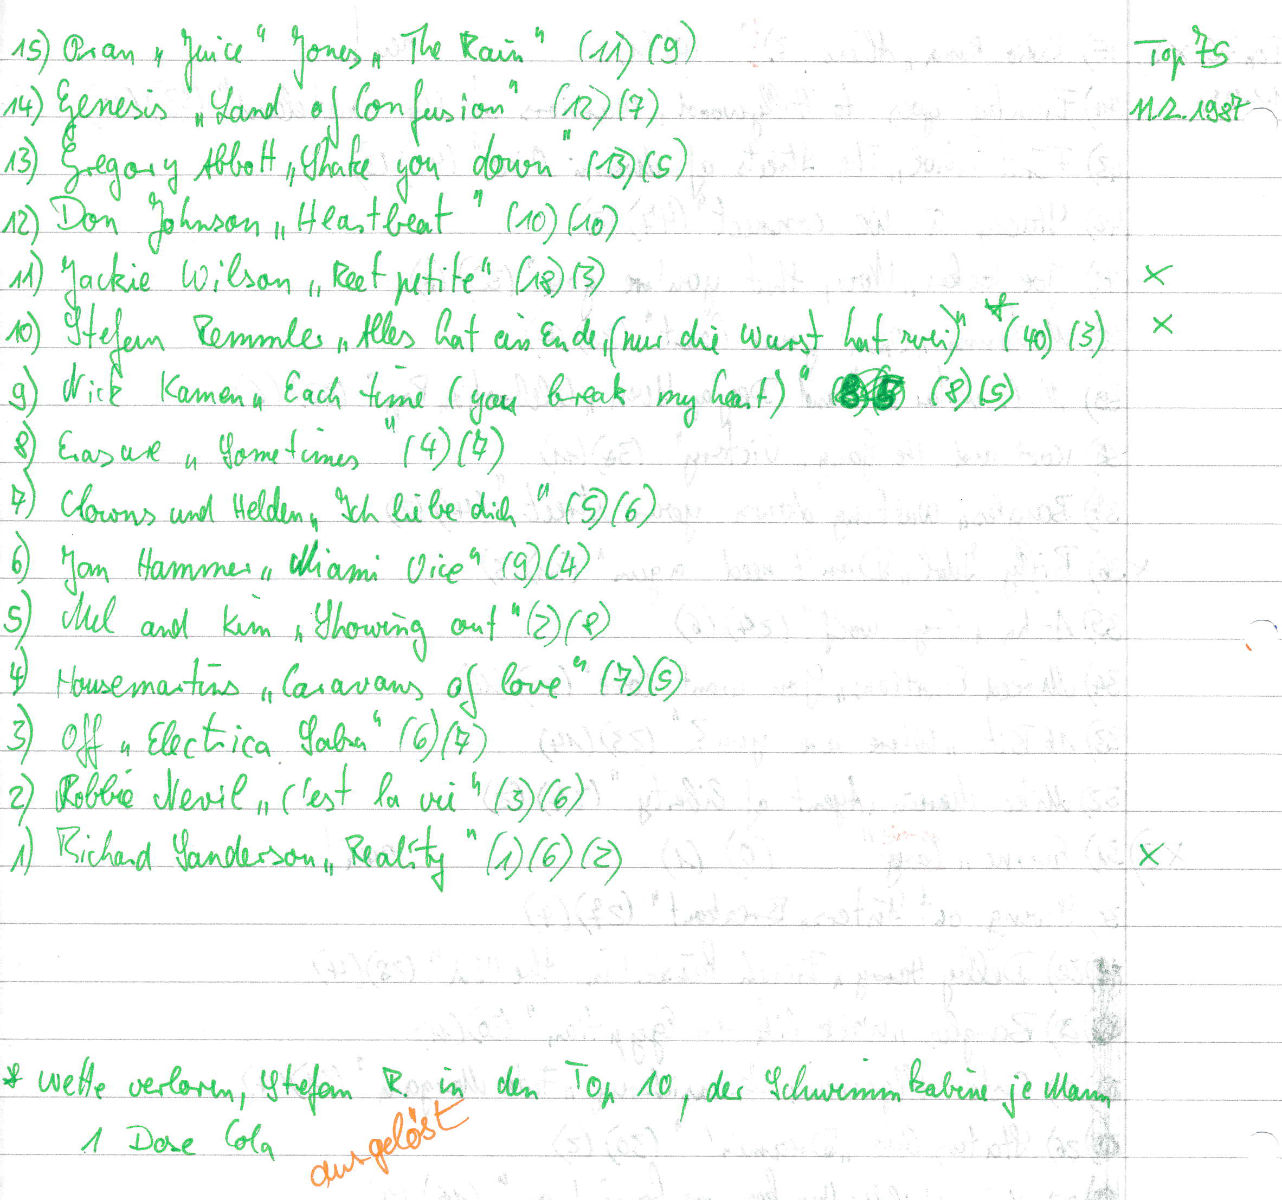 15) Oran „Juice“ Jones „The Rain“ (11) (9) Top 75
14) Genesis „Land of Confusion“ (12) (7) 11.2.1987
13) Gregory Abbott „Shake you down“ (13) (5)
12) Don Johnson „Heartbeat“ (10) (10)
11) Jackie Wilson „Reet petite“ (18) (3) x
10) Stefan Remmler „Alles hat ein Ende, (nur die Wurst hat zwei)“ * (40) (3) x
9) Nick Kamen „Each time (you break my heart)“ (8) (5)
8) Erasure „Sometimes“ (4) (7)
7) Clowns und Helden „Ich liebe dich“ (5) (6)
6) Jan Hammer „Miami Vice“ (9) (4)
5) Mel and Kim „Showing out“ (2) (8)
4) Housemartins „Caravans of love“ (7) (5)
3) Off „Electrica Salsa“ (6) (7)
2) Robbie Nevil „C'est la vie“ (3) (6)
1) Richard Sanderson „Reality“ (1) (6) (2) x
* Wette verloren, Stefan R. in den Top 10, der Schwimmkabine je Mann
1 Dose Cola
ausgelöst